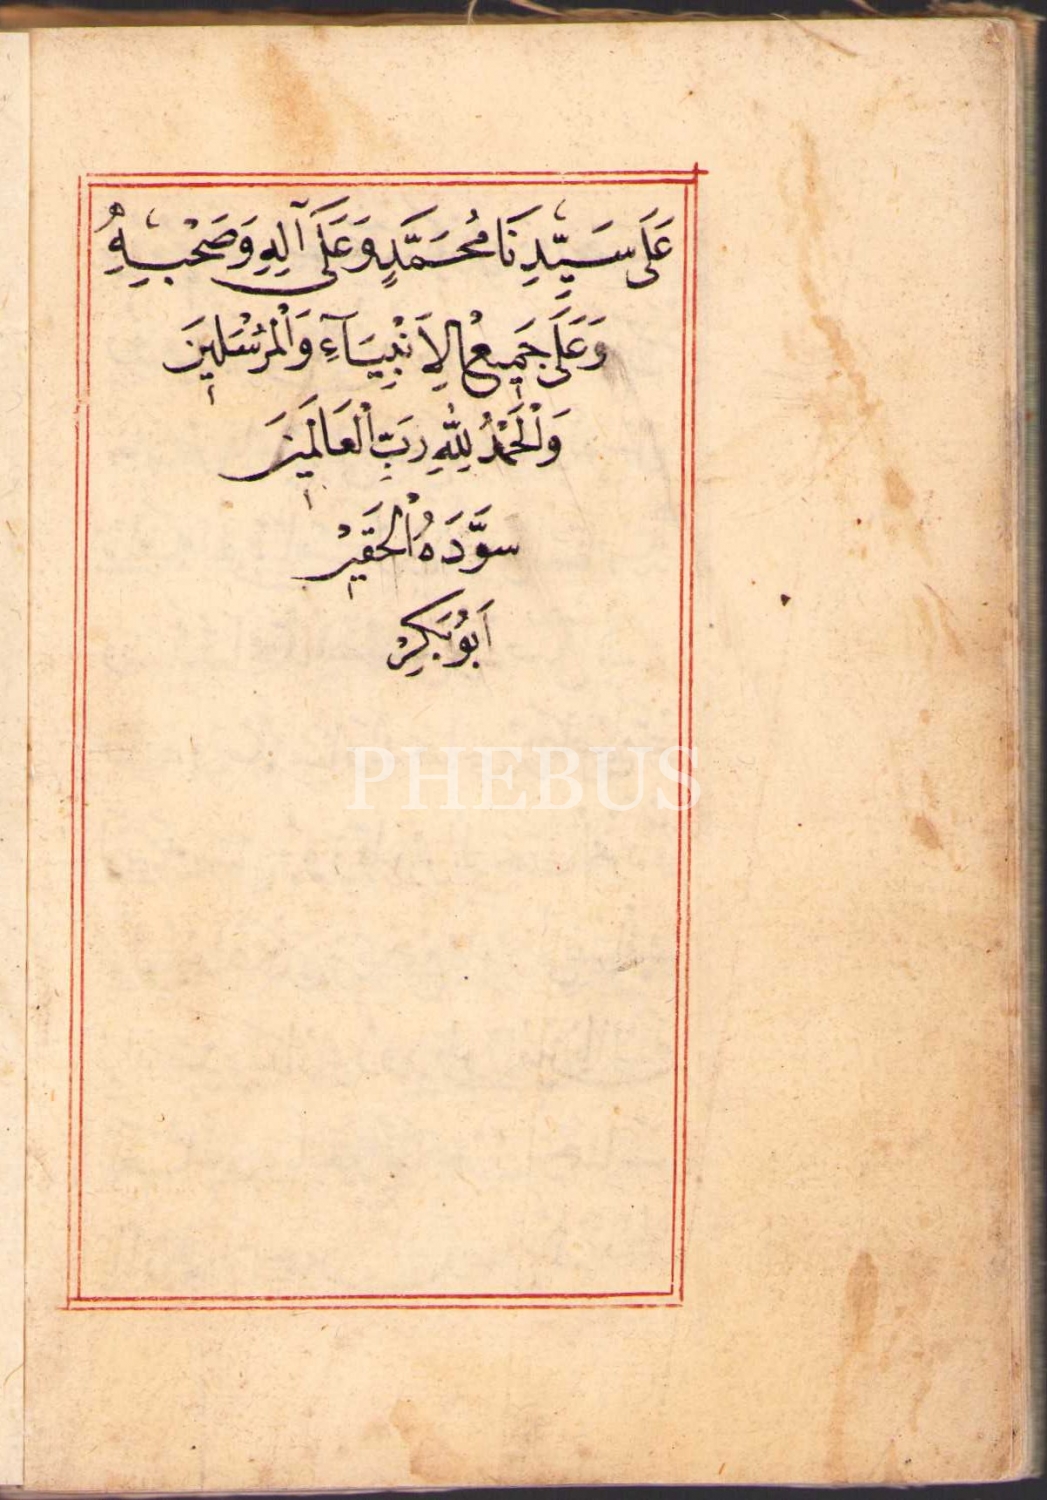 عَلَى سَيِّدِنَا مُحَمَّدٍ وَعَلَى آلِهِ وَصَحْبِهِ
وَعَلَى جَمِيعِ الاَنْبِيَآءِ وَالْمُرْسَلِينَ
وَالْحَمْدُ لِلّٰهِ رَبِّ الْعَالَمِينَ
سَوَّدَهُ الْحَقِيرْ
اَبُو بَكِرْ
PHEBUS